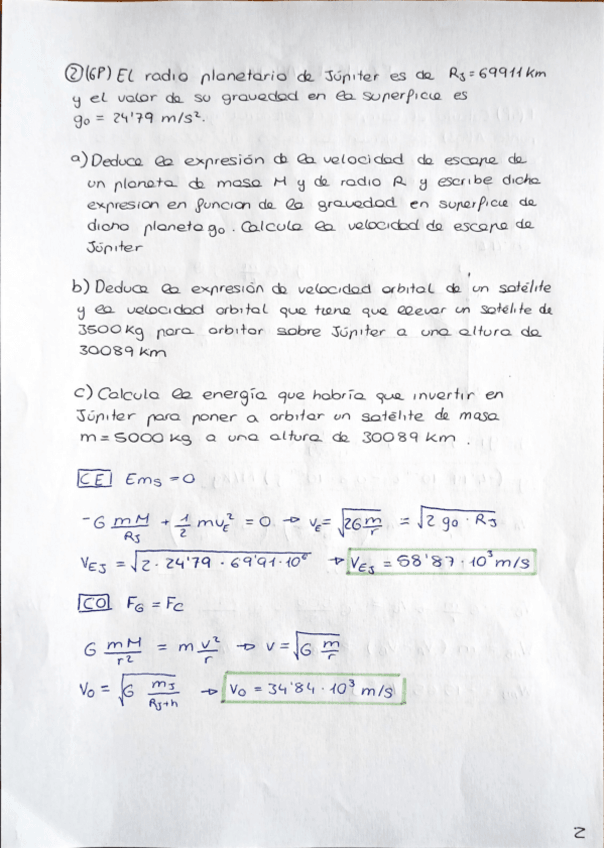 ② (6P) El radio planetario de Júpiter es de RJ = 69911 km
y el valor de su gravedad en la superficie es
g₀ = 24'79 m/s².
a) Deduce la expresión de la velocidad de escape de
un planeta de masa M y de radio R y escribe dicha
expresion en funcion de la gravedad en superficie de
dicho planeta g₀. Calcula la velocidad de escape de
Júpiter
b) Deduce la expresión de velocidad orbital de un satélite
y la velocidad orbital que tiene que llevar un satélite de
3500 kg para orbitar sobre Júpiter a una altura de
30089 km
c) Calcula la energía que habría que invertir en
Júpiter para poner a orbitar un satélite de masa
m = 5000 kg a una altura de 30089 km.
CE Ems = 0
-G mM/RJ + 1/2 mvE² = 0 → vE = √(2G m/r) = √(2 g₀ · RJ)
VEJ = √(2 · 24'79 · 69'91 · 10⁶) → VEJ = 58'87 · 10³ m/s
CO FG = FC
G mM/r² = m v²/r → v = √(G m/r)
V₀ = √(G mJ/(RJ+h)) → V₀ = 34'84 · 10³ m/s
2